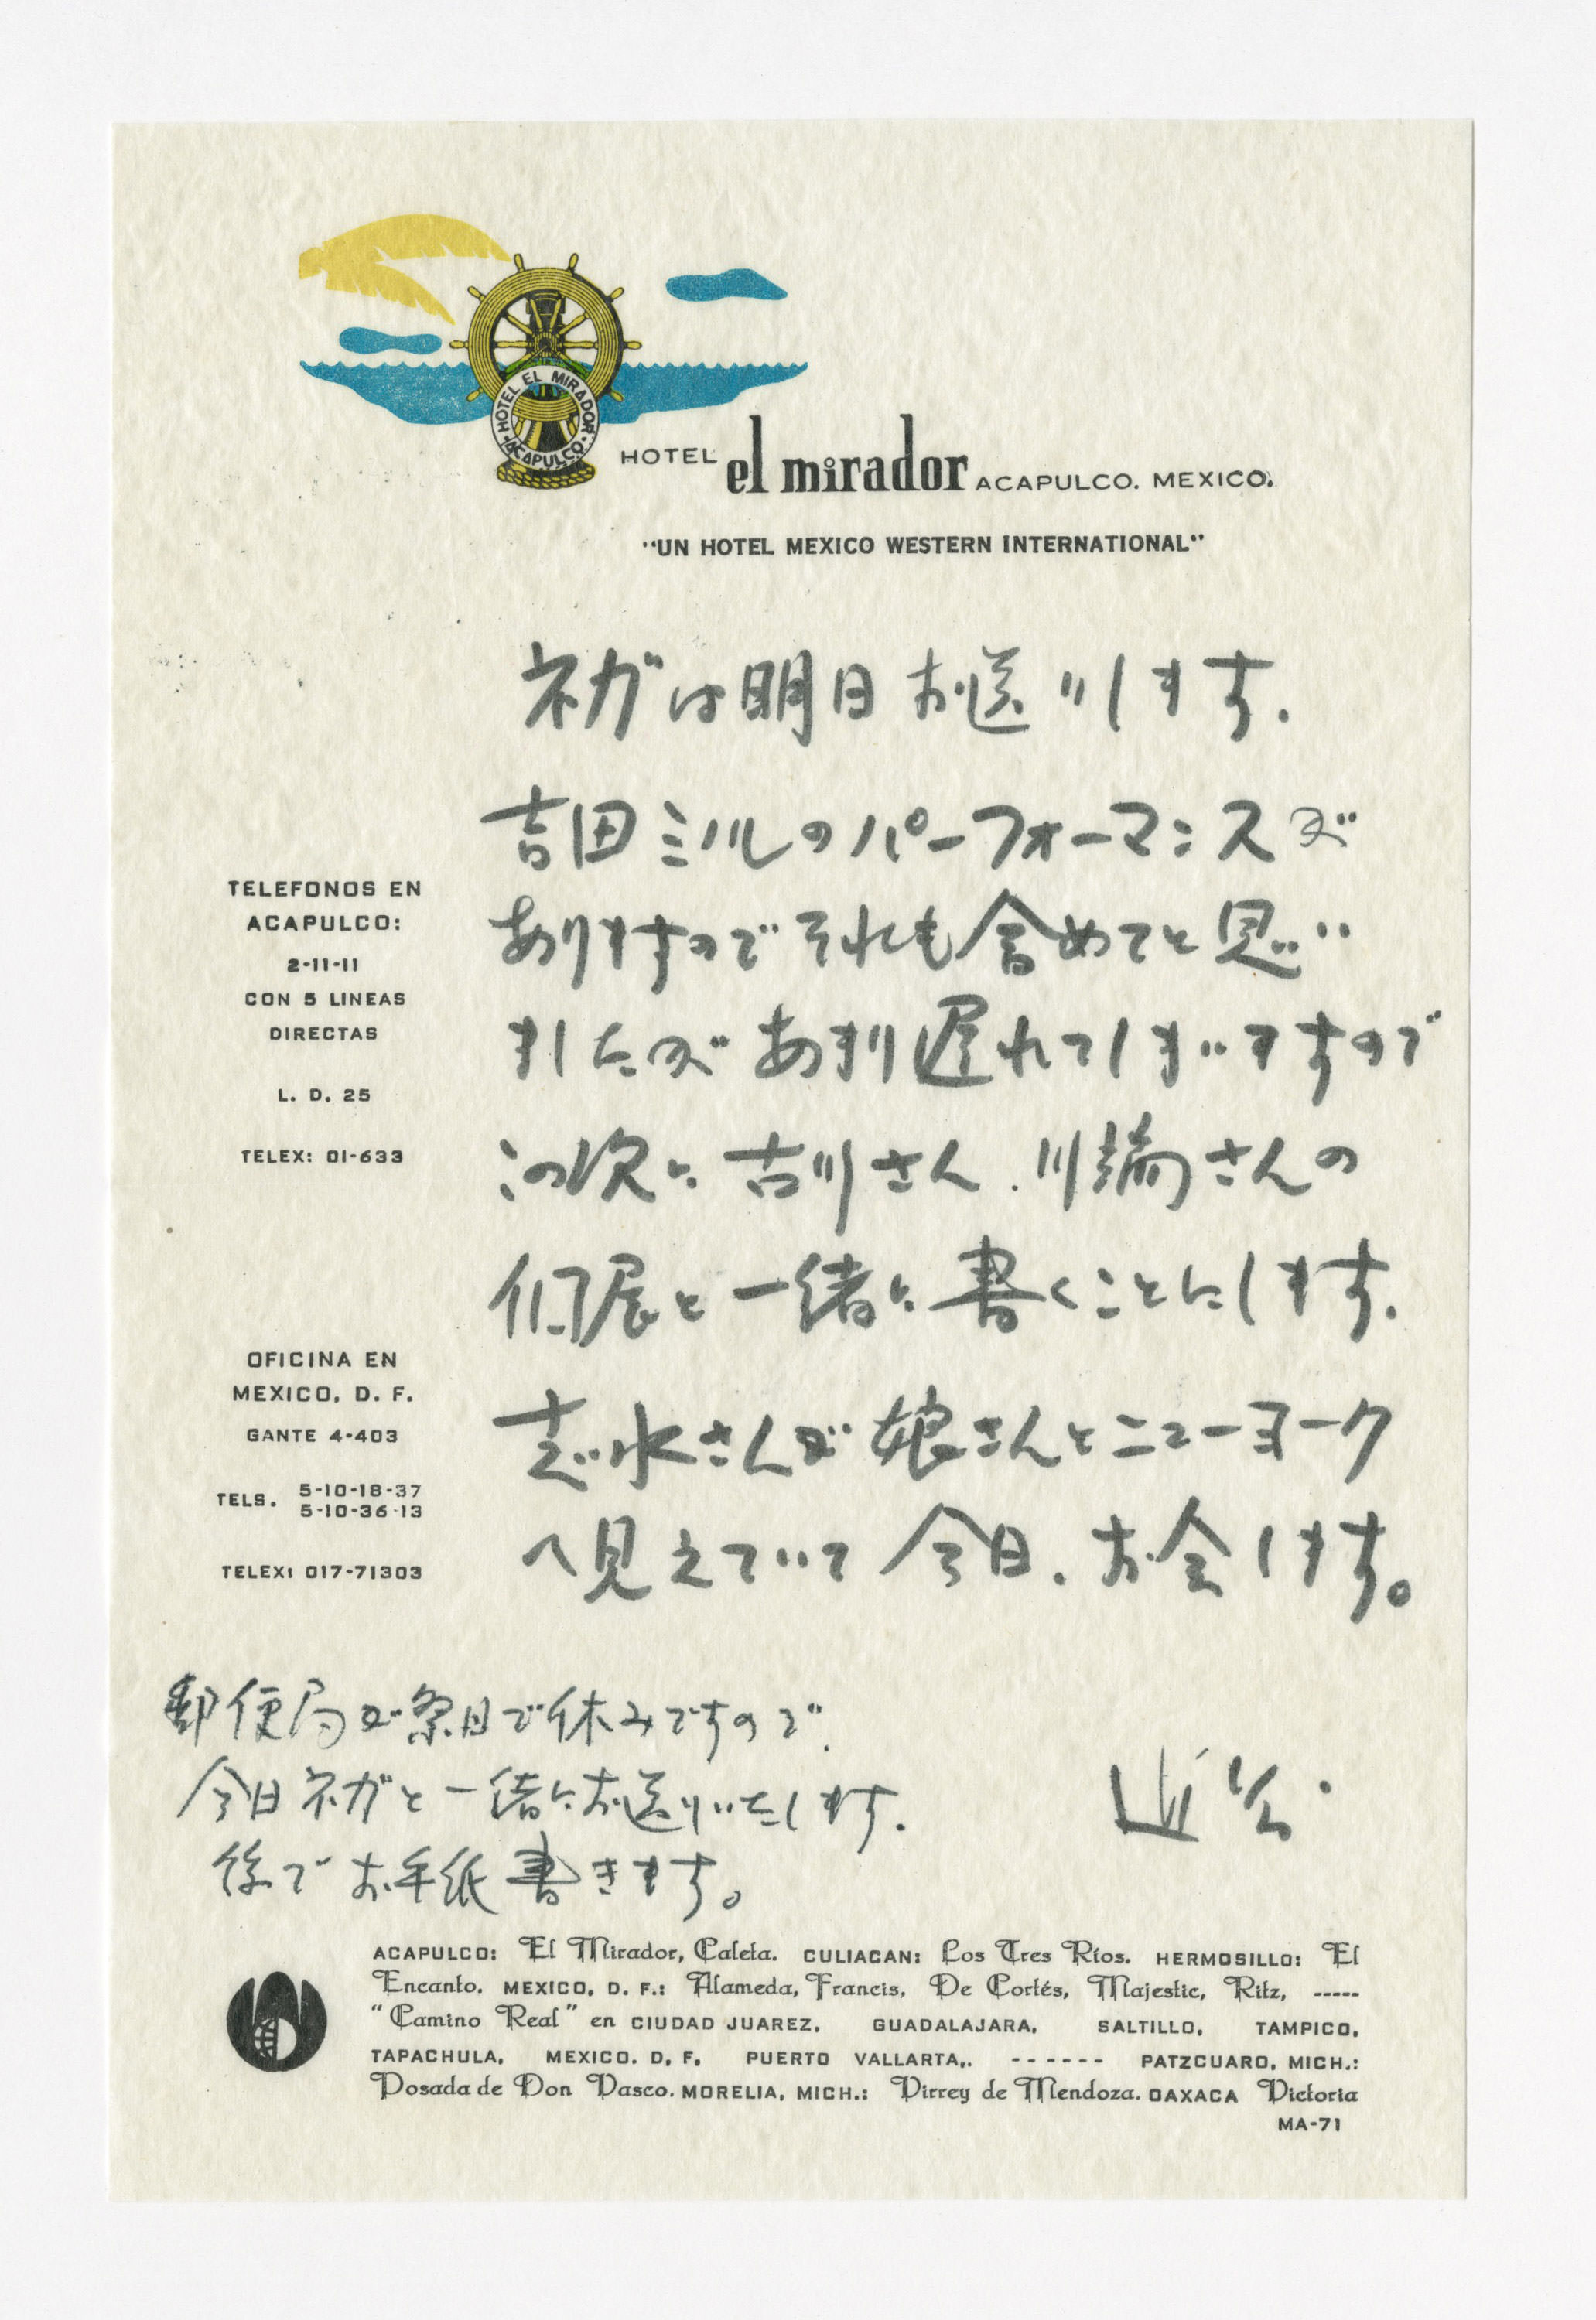 HOTEL EL MIRADOR
ACAPULCO
HOTEL el mirador ACAPULCO. MEXICO.
"UN HOTEL MEXICO WESTERN INTERNATIONAL"
ネガは明日お送りします.
吉田ミノルのパーフォーマンスが
ありますのでそれも含めてと思い
ましたが あまり遅れてしまいますので
この次に 吉川さん.川端さんの
個展と一緒に書くことにします.
志水さんが 娘さんとニューヨーク
へ見えていて 今日. お会します。
郵便局が祭日で休みですので.
今日ネガと一緒にお送りいたします.
後でお手紙書きます。
TELEFONOS EN
ACAPULCO:
2-11-11
CON 5 LINEAS
DIRECTAS
L. D. 25
TELEX: 01-633
OFICINA EN
MEXICO, D. F.
GANTE 4-403
TELS. 5-10-18-37
5-10-36-13
TELEX: 017-71303
ACAPULCO: El Mirador, Caleta. CULIACAN: Los Tres Ríos. HERMOSILLO: El
Encanto. MEXICO, D. F.: Alameda, Francis, De Cortés, Majestic, Ritz, -----
"Camino Real" en CIUDAD JUAREZ, GUADALAJARA, SALTILLO, TAMPICO,
TAPACHULA, MEXICO. D, F, PUERTO VALLARTA,. ------ PATZCUARO, MICH.:
Posada de Don Vasco. MORELIA, MICH.: Virrey de Mendoza. OAXACA Victoria
MA-71